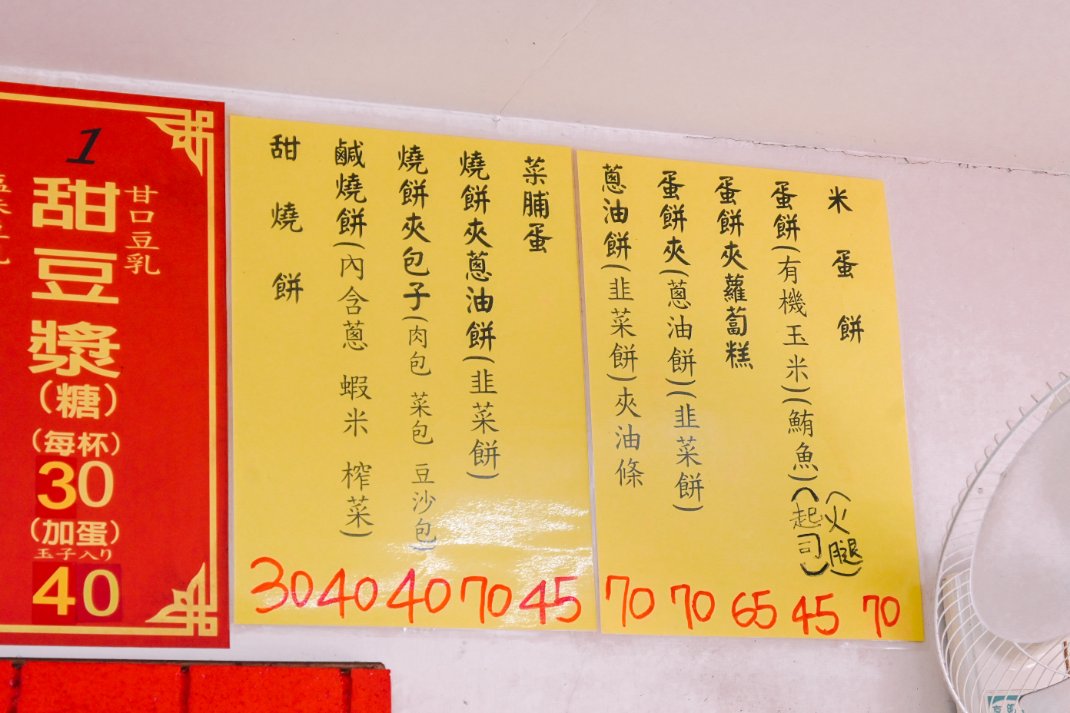 1
甜豆漿
甘口豆乳
(糖)
(每杯)
30
(加蛋)
玉子入り
40
米蛋餅
70
蛋餅(有機玉米)(鮪魚)(起司)(火腿)
45
蛋餅夾蘿蔔糕
65
蛋餅夾(蔥油餅)(韭菜餅)
70
蔥油餅(韭菜餅)夾油條
70
菜脯蛋
45
燒餅夾蔥油餅(韭菜餅)
70
燒餅夾包子(肉包 菜包 豆沙包)
40
鹹燒餅(內含蔥 蝦米 榨菜)
40
甜燒餅
30